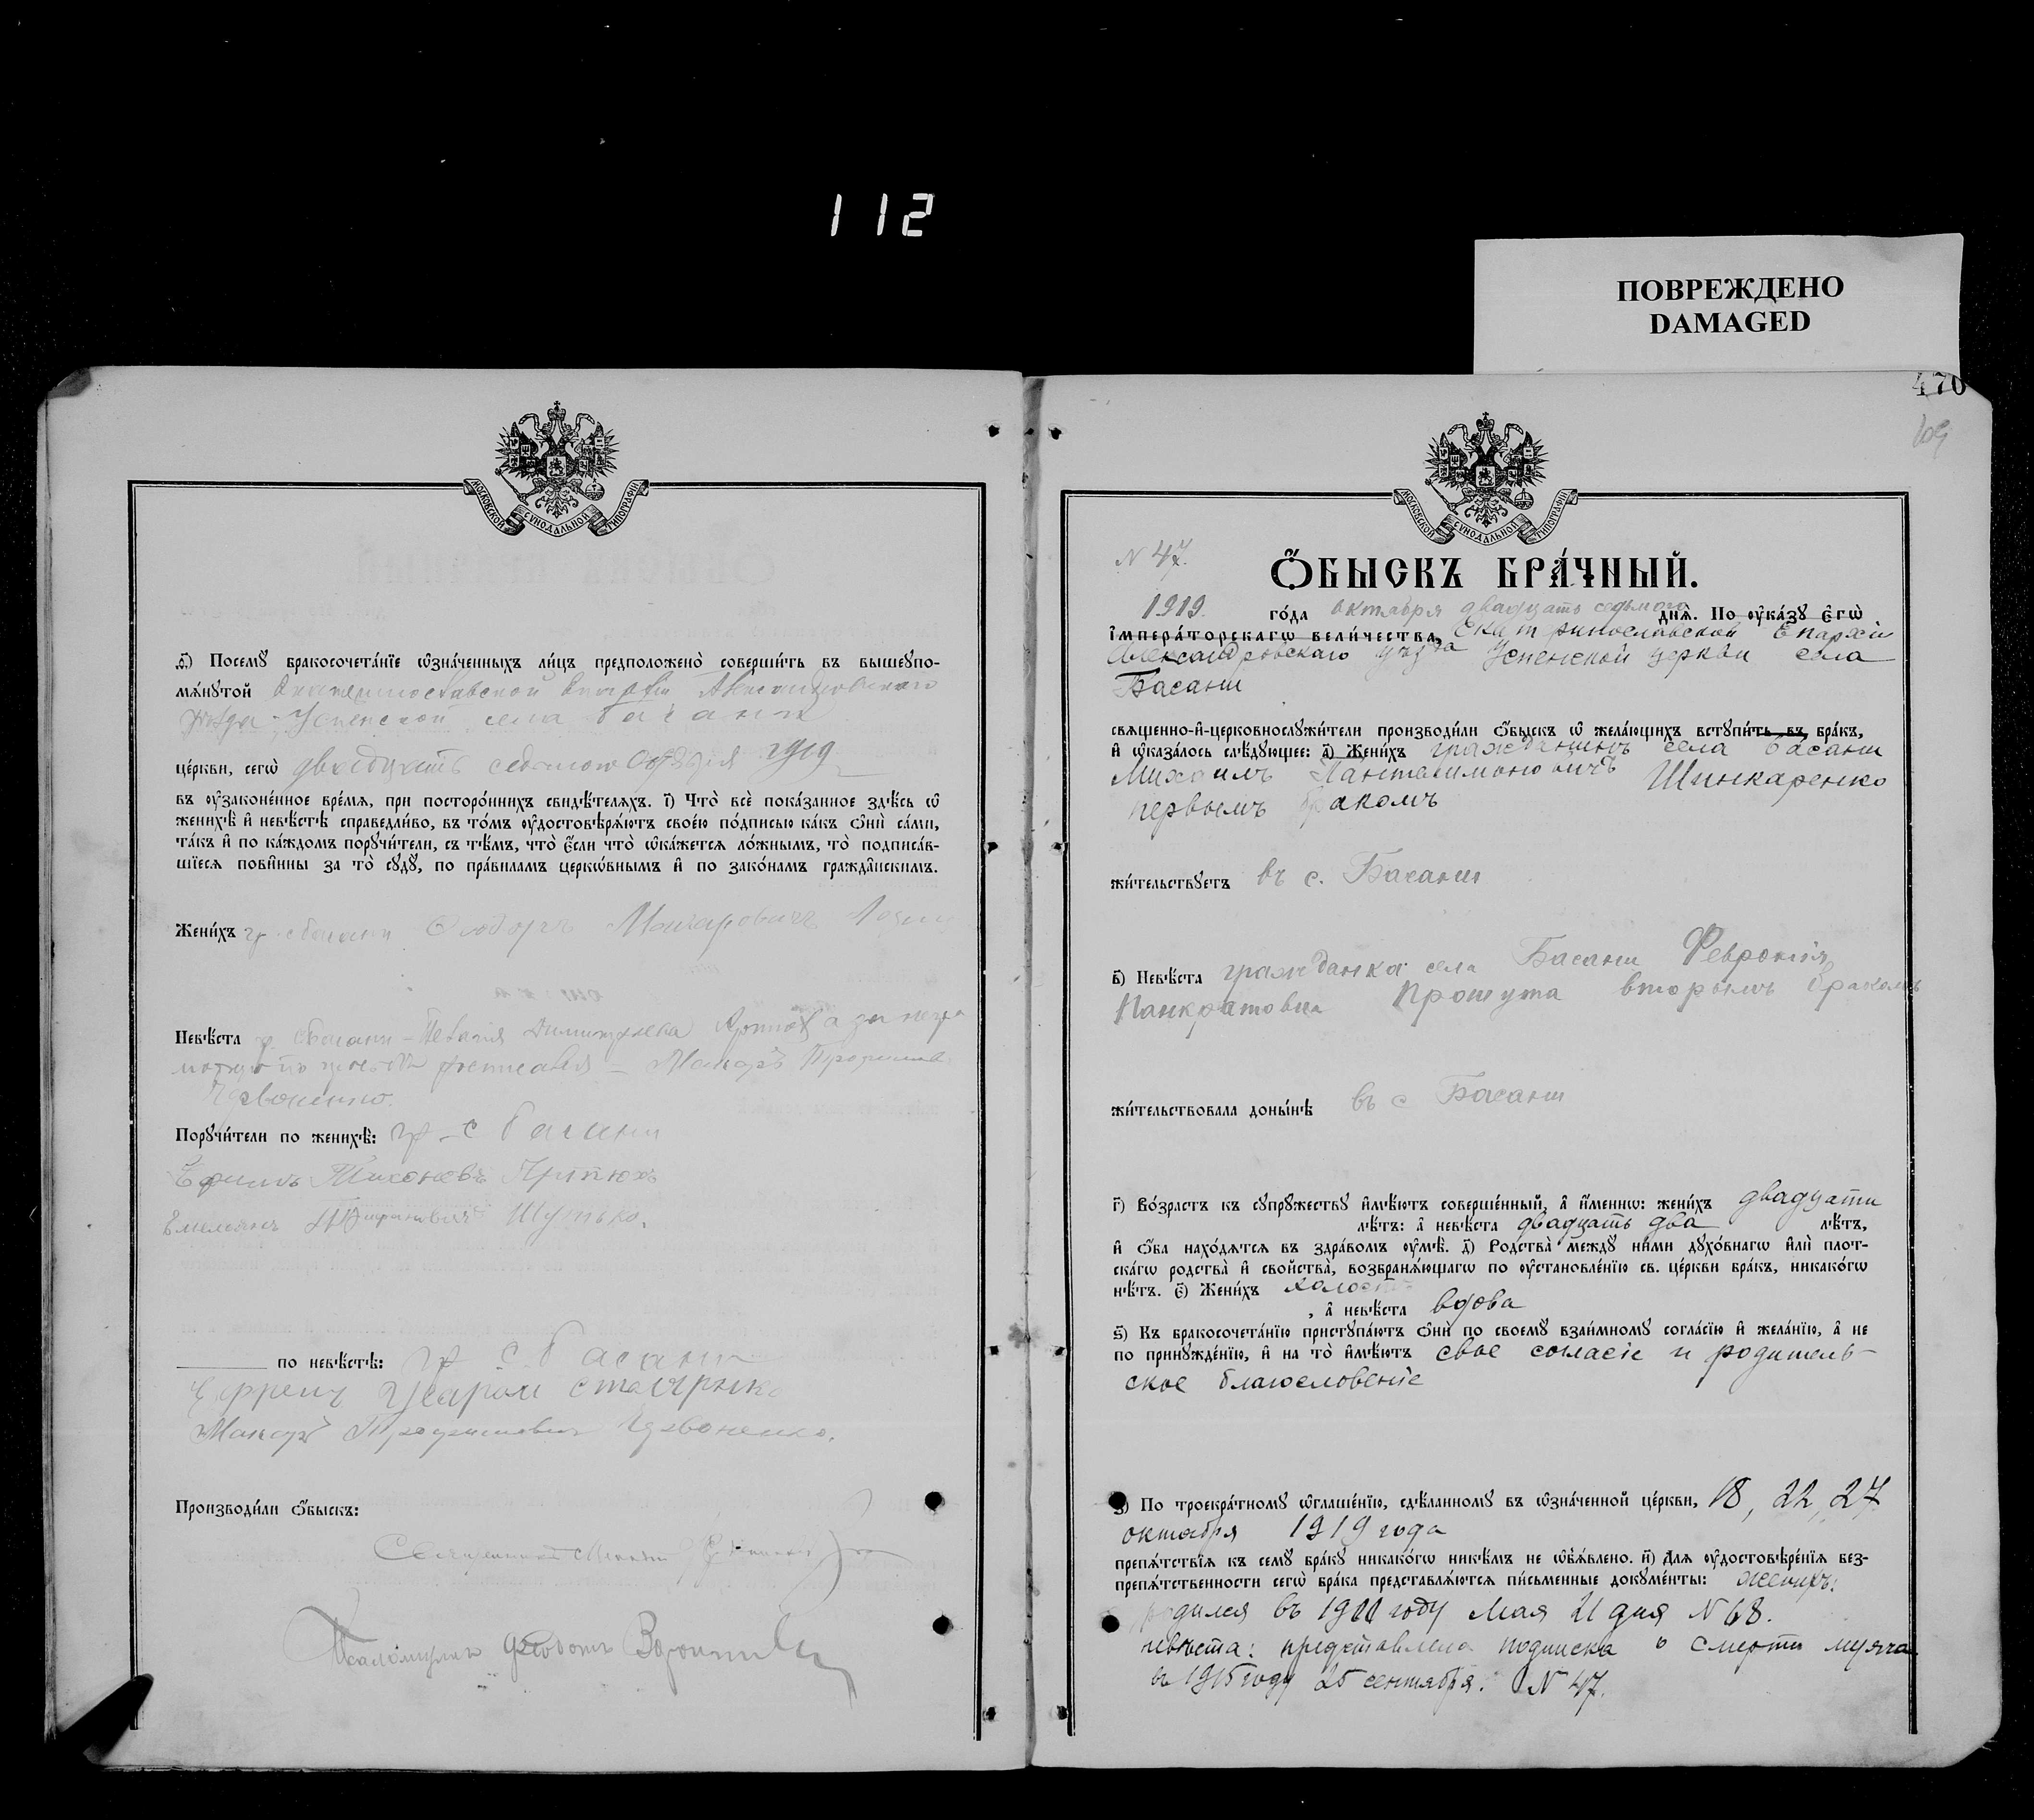 112
ПОВРЕЖДЕНО
DAMAGED
МОСКОВСКОЙ СѴНОДАЛЬНОЙ ТИПОГРАФІИ
ѳ҃) Посемꙋ бракосочета́нїе ѡ҆зна́ченныхъ ли́цъ предположено̀ соверши́ть въ вышеꙋпо-
мѧ́нꙋтой Екатеринославской Епархіи Александровскаго
уѣзда Успенской села Басани
це́ркви, сегѡ̀ двадцать седьмого Октября 1919
въ ᲂу҆законе́нное вре́мѧ, при посторо́ннихъ свидѣ́телѧхъ. і҃) Что̀ всѐ пока́занное здѣ́сь ѡ҆
женихѣ̀ и҆ невѣ́стѣ справедли́во, въ то́мъ ᲂу҆достовѣрѧ́ютъ свое́ю по́дписью ка́къ ѻ҆нѝ са́ми,
та́къ и҆ по ка́ждомъ порꙋчи́тели, съ тѣ́мъ, что̀ є҆́сли что̀ ѡ҆ка́жетсѧ ло́жнымъ, то̀ подписа́в-
шїесѧ пови́нны за то̀ сꙋдꙋ̀, по пра́виламъ церкѡ́внымъ и҆ по зако́намъ гражда́нскимъ.
Жени́хъ гр. с Басани Ѳедоръ Макаровичъ
Невѣ́ста гр. с Басани Димитріева
Макаръ
Червоненко.
Порꙋчи́тели по женихѣ̀: гр. с Басани
Ефимъ Тихоновъ Артюхъ
Емельянъ Шутько.
по невѣ́стѣ: гр. с. Басани
Ефремъ
Макаръ Трофимовичъ Червоненко.
Производи́ли ѻ҆́быскъ:
Священникъ
Псаломщикъ Ѳеодотъ
470
109
МОСКОВСКОЙ СѴНОДАЛЬНОЙ ТИПОГРАФІИ
N 47.
Ѻ҆́БЫСКЪ БРА́ЧНЫЙ.
1919. го́да октября двадцать седьмого днѧ̀. По ᲂу҆ка́зꙋ є҆гѡ̀
і҆мпера́торскагѡ вели́чества, Екатеринославской Епархіи
Александровскаго уѣзда Успенской церкви села
Басани
свѧще́нно-и҆-церковнослꙋжи́тели производи́ли ѻ҆́быскъ ѡ҆ жела́ющихъ встꙋпи́ть въ бра́къ,
и҆ ѡ҆каза́лось слѣ́дꙋющее: а҃) Жени́хъ гражданинъ села Басани
Михаилъ Пантелимоновичъ Шинкаренко
первымъ бракомъ
жи́тельствꙋетъ въ с. Басани
в҃) Невѣ́ста гражданка села Басани Февронія
Панкратовна Прошута вторымъ бракомъ
жи́тельствовала доны́нѣ въ с Басани
г҃) Во́зрастъ къ сꙋпрꙋ́жествꙋ и҆мѣ́ютъ соверше́нный, а҆ и҆́меннѡ: жени́хъ двадцати
лѣ́тъ: а҆ невѣ́ста двадцать два лѣ́тъ,
и҆ ѻ҆́ба нахо́дѧтсѧ въ здра́вомъ ᲂу҆мѣ̀. д҃) Родства̀ междꙋ̀ ни́ми дꙋхо́внагѡ и҆лѝ плот-
ска́гѡ родства̀ и҆ свойства̀, возбранѧ́ющагѡ по ᲂу҆становле́нїю св. це́ркви бра́къ, никако́гѡ
нѣ́тъ. є҃) Жени́хъ холостъ
, а҆ невѣ́ста вдова
ѕ҃) Къ бракосочета́нїю пристꙋпа́ютъ ѻ҆нѝ по своемꙋ̀ взаи́мномꙋ согла́сїю и҆ жела́нїю, а҆ не
по принꙋжде́нїю, и҆ на то̀ и҆мѣ́ютъ свое согласіе и родитель-
ское благословеніе
з҃) По троекра́тномꙋ ѡ҆глаше́нїю, сдѣ́ланномꙋ въ ѡ҆зна́ченной це́ркви, 18, 22, 27
октября 1919 года
препѧ́тствїѧ къ семꙋ̀ бра́кꙋ никако́гѡ никѣ́мъ не ѡ҆б̾ѧ́влено. и҃) Длѧ ᲂу҆достовѣре́нїѧ без-
препѧ́тственности сегѡ̀ бра́ка представлѧ́ютсѧ пи́сьменные докꙋме́нты: женихъ:
родился въ году Мая 21 дня N 68.
невѣста: представлена подписка о смерти мужа
въ 1915 году 25 сентября. N 47.